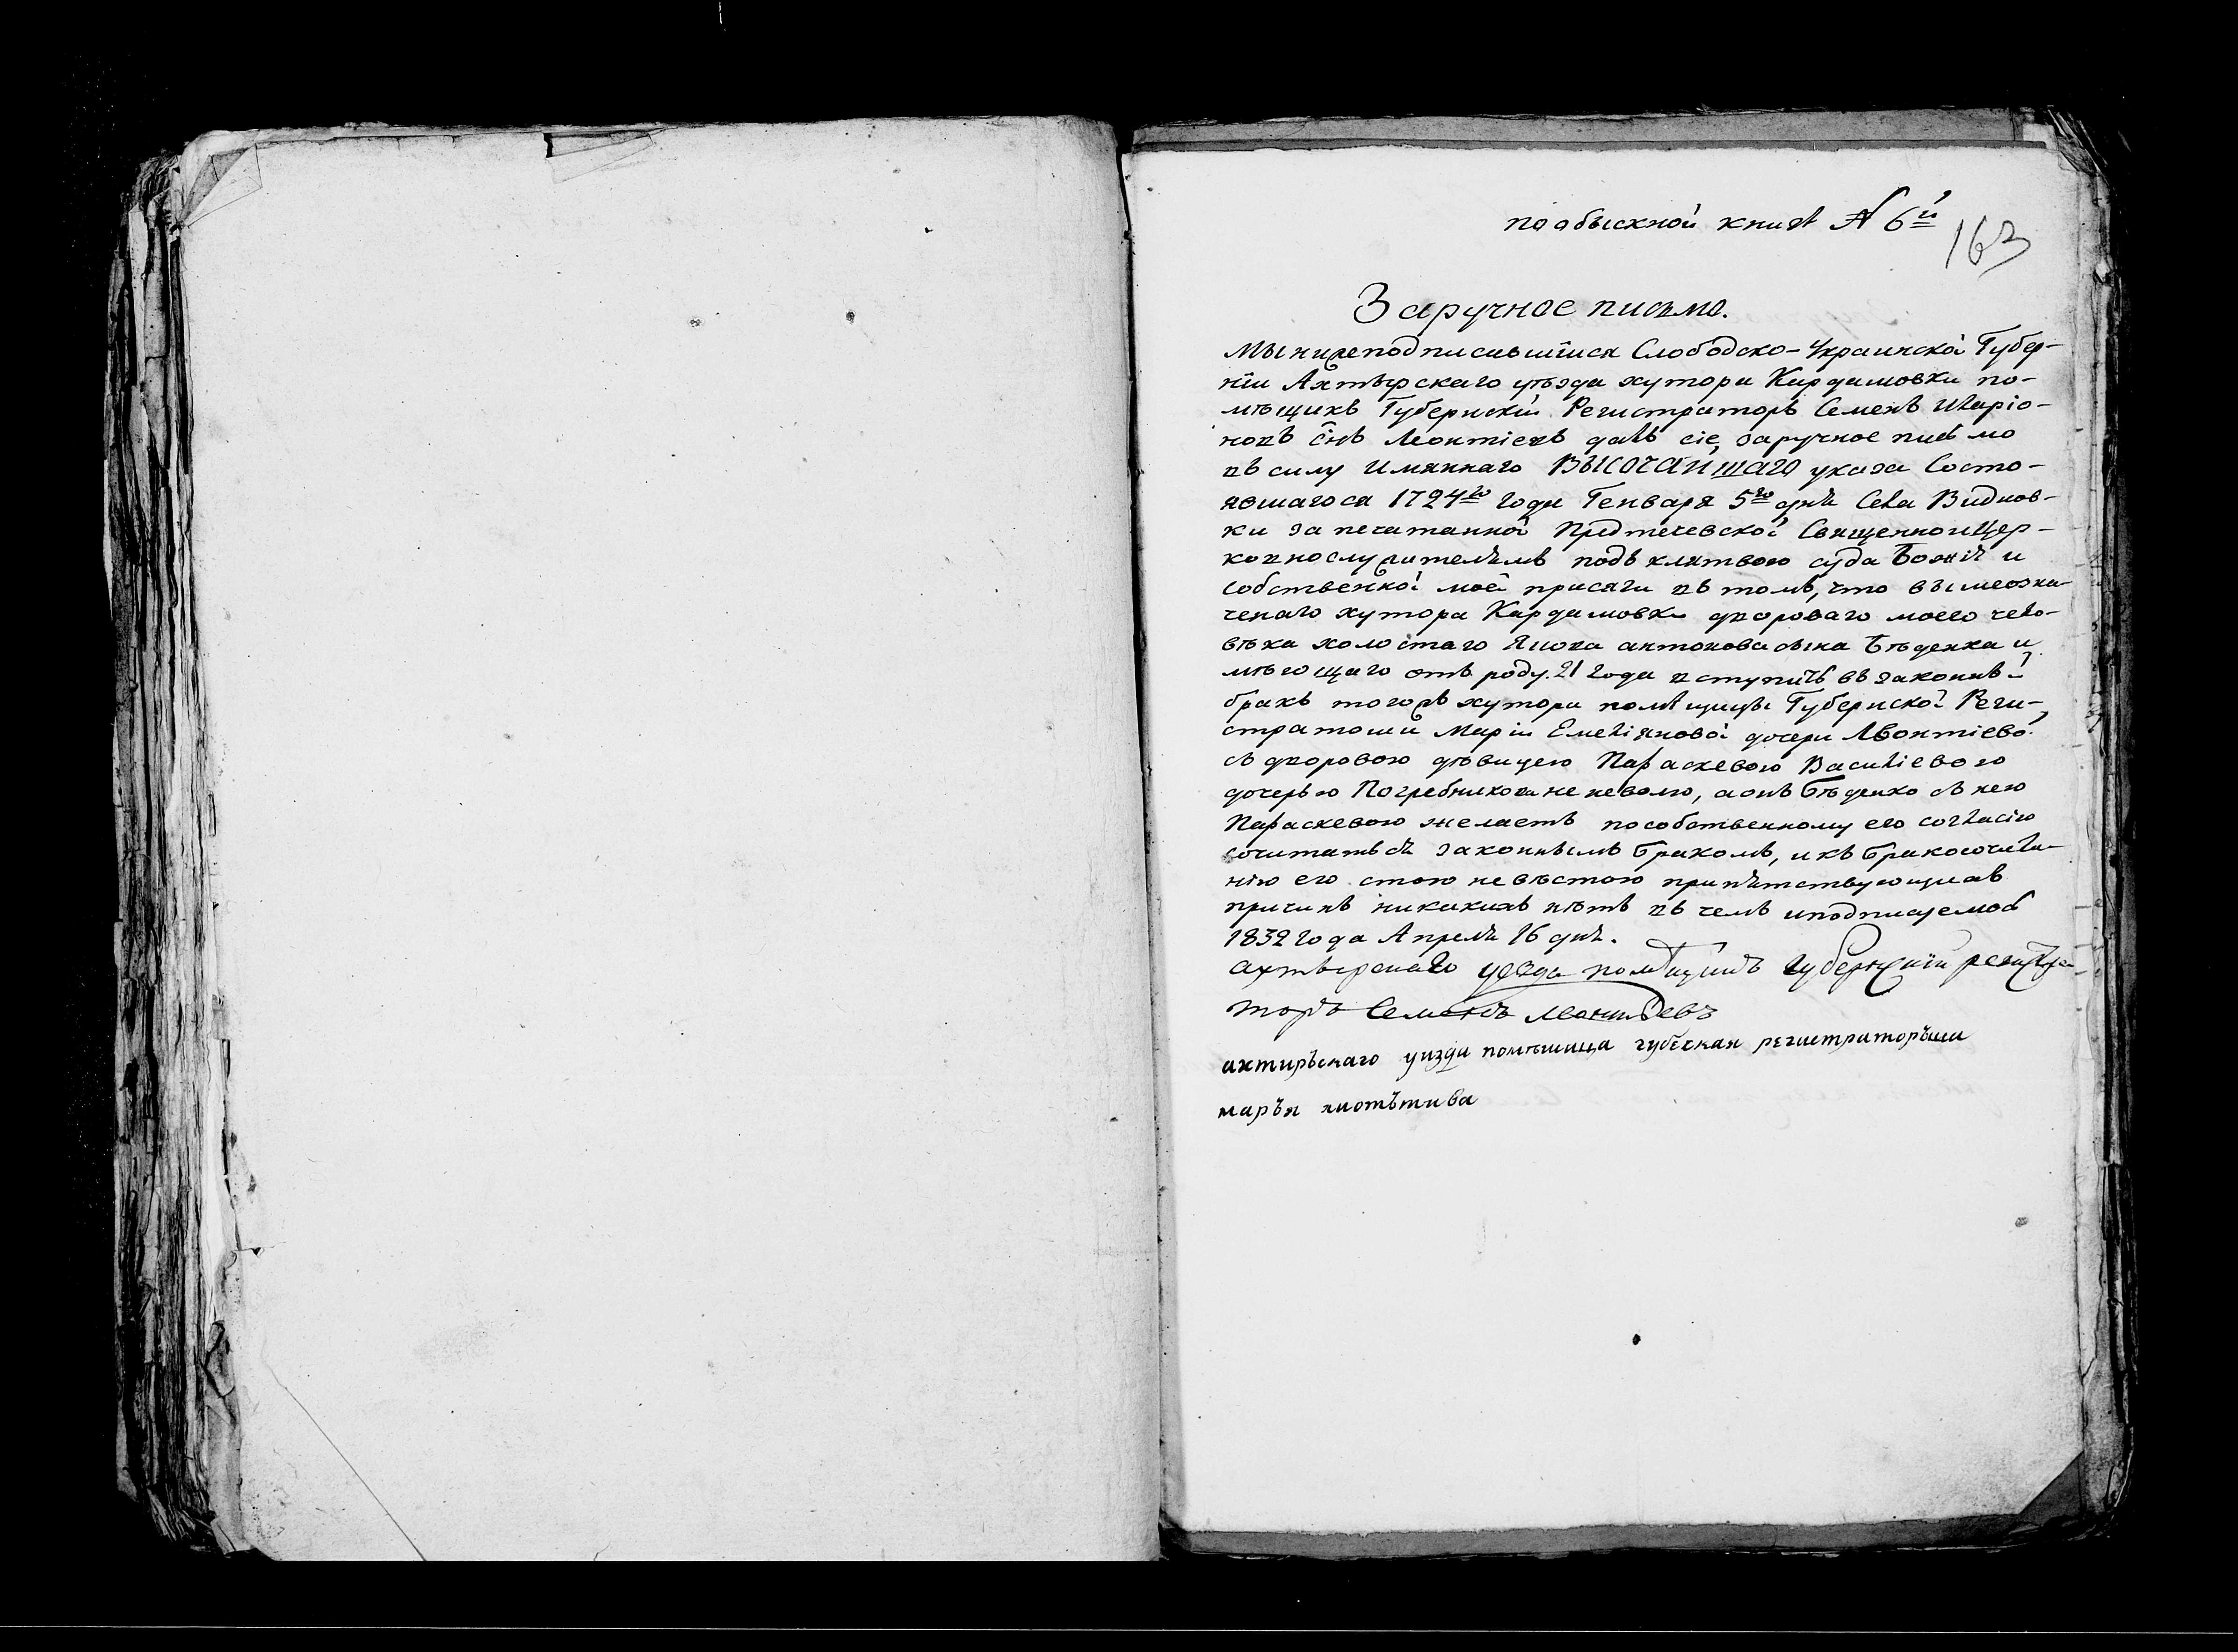 по обыскной книгѣ № 6й
163
Заручное письмо.
Мы нижеподписавшійся Слободско-Украинской Губер-
ніи Ахтырскаго уѣзда хутора Кардамовки по-
мѣщикъ Губернскій Регистраторъ Семенъ Иларіо-
новъ сн҃ъ Леонтіевъ далъ сіе заручное письмо
въ силу Имяннаго ВЫСОЧАЙШАГО указа Состо-
явшагося 1724го года Генваря 5го дня Села Видنов-
ки запечатанной Предтечевской Священноицер-
ковнослужителямъ подъ клятвою суда Божія и
собственной моей присяги въ томъ, что вышеозна-
ченаго хутора Кардамовки двороваго моего чело-
вѣка холостаго Якова антонова сына Бѣденка и
мѣющаго отъ роду 21 года вступить въ законный
бракъ тогожъ хутора помѣщицы Губернской Реги-
стратоши Маріи Емеліяновой дочери Леонтіевой
съ дворовою дѣвицею Параскевою Василіевою
дочерью Погребняковою неневолю, а онъ Бѣденко съ нею
Параскевою желаетъ пособственному его согласію
сочитаться законнымъ бракомъ, и къ бракосочита-
нію его стою невѣстою припятствующихъ
причинъ никакихъ нѣтъ въ чемъ иподписуемся
1832 года Апреля 16 дня.
ахтырскаго уезда помѣщикъ губернскій регистра-
торъ Семенъ Леонтьевъ
ахтиръскаго уизда помѣшица губеская регистраторъша
маръя лиотътива